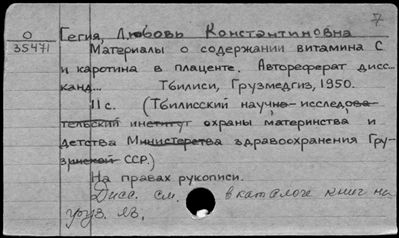 7
О
35471
Гегия, Любовь Константиновна
Материалы о содержании витамина С
и каротина в плаценте. Автореферат дисс...
канд... Тбилиси, Грузмедгиз, 1950.
11 с. (Тбилисский научно-исследова-
тельский институт охраны материнства и
детства Министерства здравоохранения Гру-
зинской ССР.)
На правах рукописи.
Дисс. см. в каталоге книг на
груз. яз.